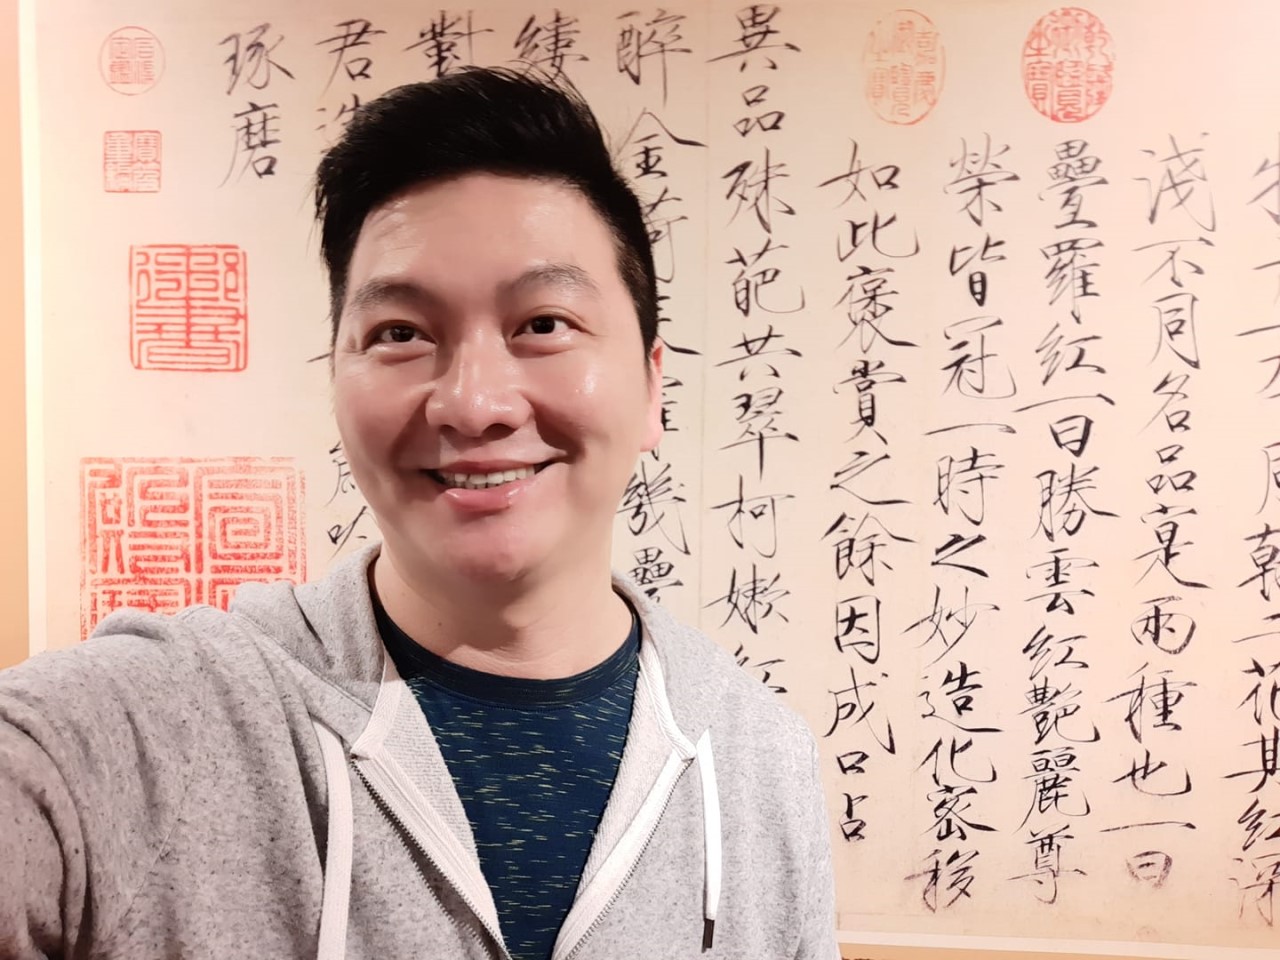 二花其紅深
淺不同名品寔兩種也一曰
疊羅紅一曰勝雲紅艷麗尊
榮皆冠一時之妙造化密移
如此褒賞之餘因成口占
異品殊葩共翠柯嫩紅
醉金荷羅幾疊
縷
對
君造吟
琢磨
御書